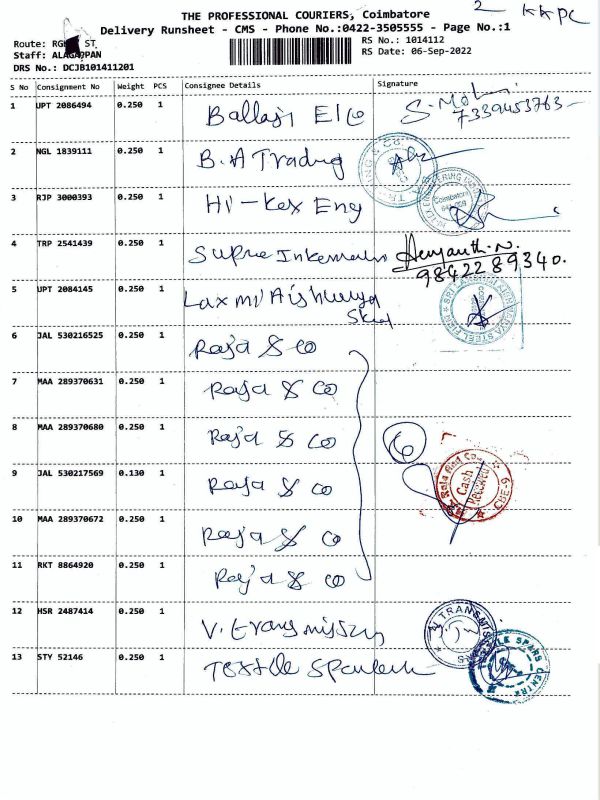 THE PROFESSIONAL COURIERS, Coimbatore
2 KKPC
Delivery Runsheet - CMS - Phone No.:0422-3505555 - Page No.:1
Route: ST
Staff: ALAGAPPAN
DRS No.: DCJB101411201
RS No.: 1014112
RS Date: 06-Sep-2022
S No Consignment No Weight PCS Consignee Details Signature
1 UPT 2086494 0.250 1 Ballaji El Co S. Mohan 7339453763
2 NGL 1839111 0.250 1 B.A Trading
3 RJP 3000393 0.250 1 Hi-kex Eng
4 TRP 2541439 0.250 1 Supra 9842289340.
5 UPT 2084145 0.250 1 Laxmi Steel
6 JAL 530216525 0.250 1 Raja & Co
7 MAA 289370631 0.250 1 Raja & Co
8 MAA 289370680 0.250 1 Raja & Co 6
9 JAL 530217569 0.130 1 Raja & Co Raja And Co. Cash Received CBE-9
10 MAA 289370672 0.250 1 Raja & Co
11 RKT 8864920 0.250 1 Raja & Co
12 HSR 2487414 0.250 1
13 STY 52146 0.250 1 Textile